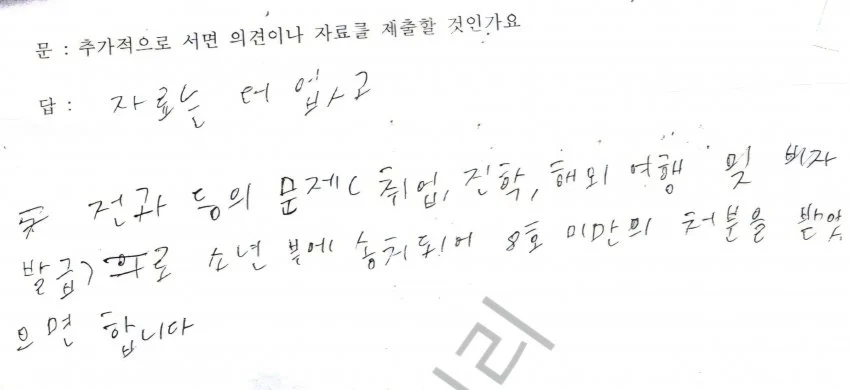 문 : 추가적으로 서면 의견이나 자료를 제출할 것인가요
답 : 자료는 더 없사고
전과 등의 문제( 취업, 진학, 해외 여행 및 비자
발급) 으로 소년 부에 송치되어 8호 미만의 처분을 받았
으면 합니다
리